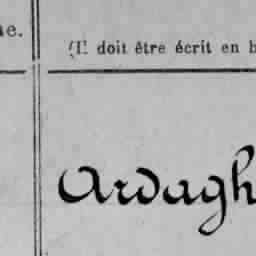 ue.
(Il doit être écrit en b
Ardagh